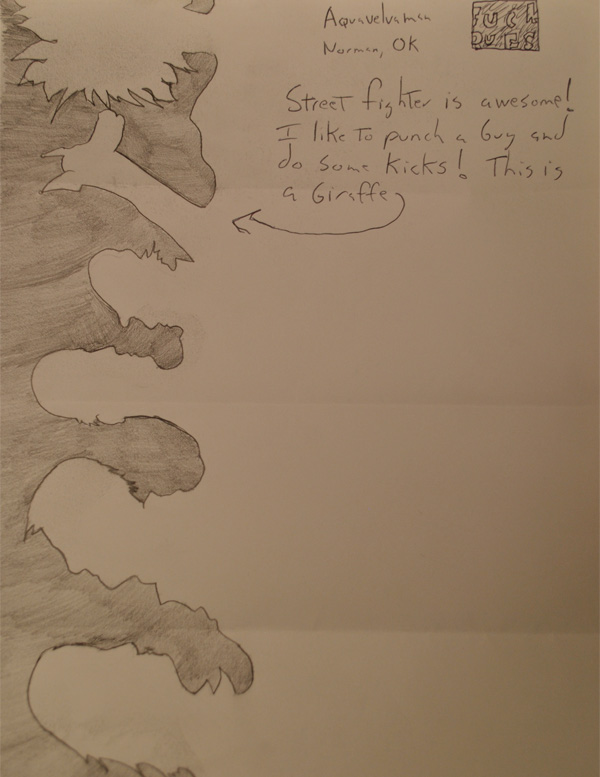 Aquavelvaman
Norman, OK
FUCK
DUES
Street fighter is awesome!
I like to punch a Guy and
do some kicks! This is
a Giraffe